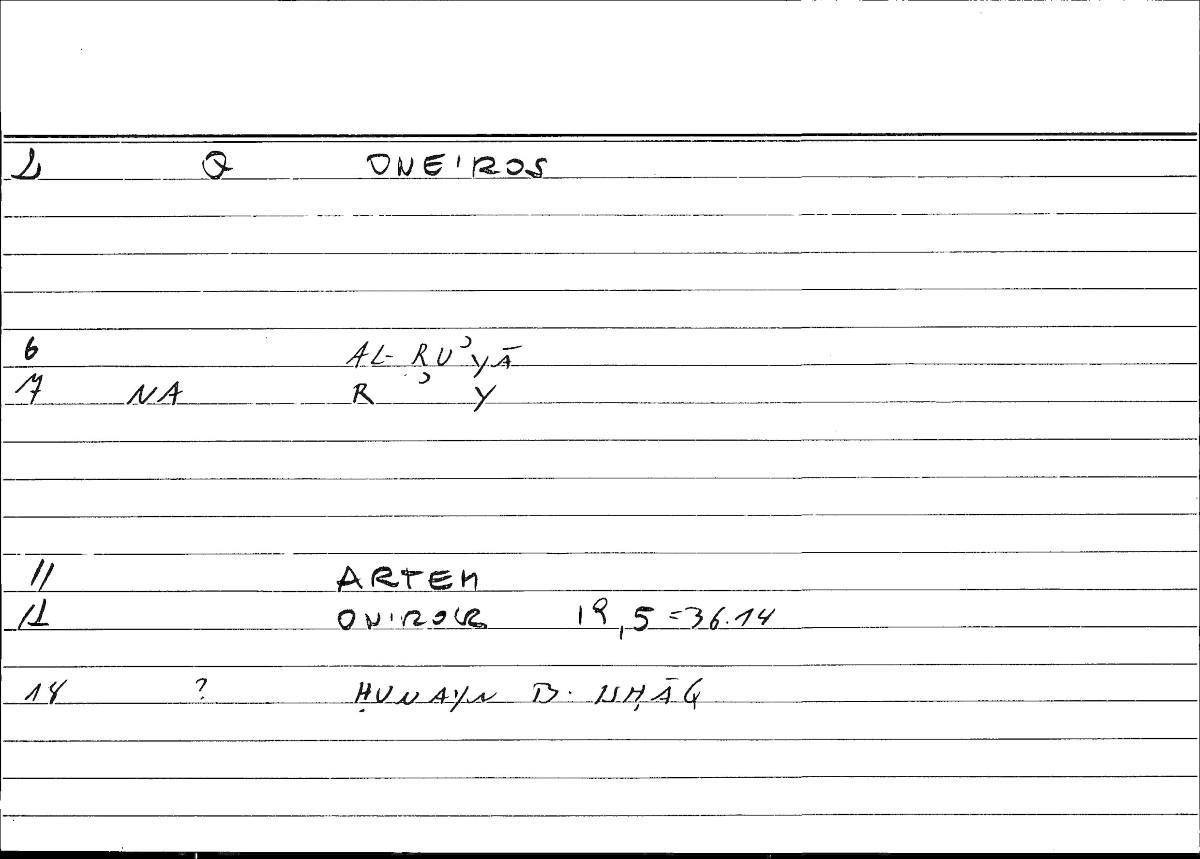 2 Q ONEIROS
6 AL-RU᾿YĀ
7 NA R ᾿ Y
11 ARTEM
12 ONIROCR 19,5=36.14
14 ? ḤUNAYN B. ISḤĀQ